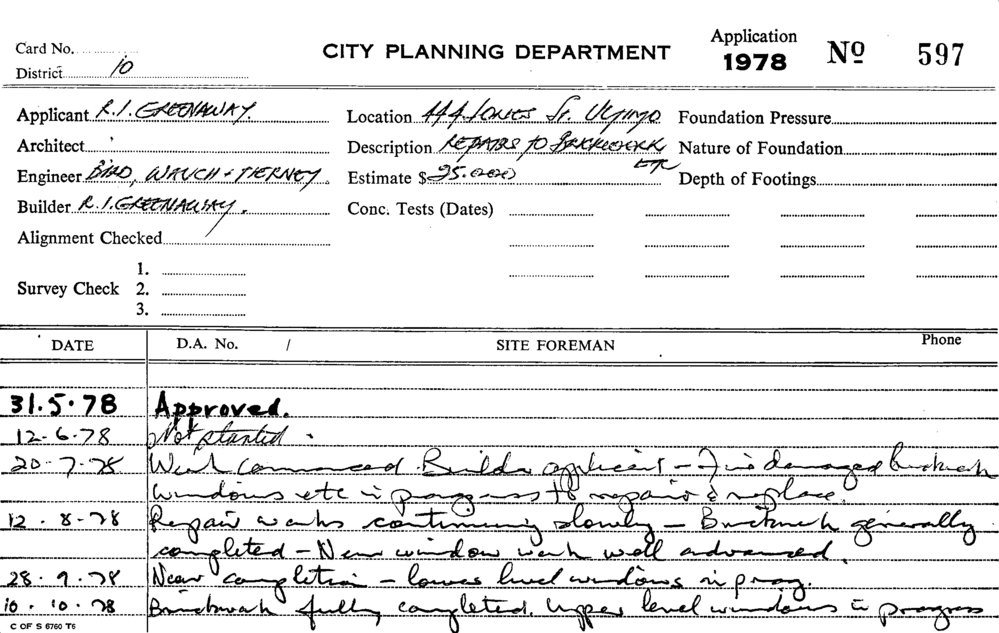 Card No.
District 10
CITY PLANNING DEPARTMENT
Application
1978 No 597
Applicant R.I. GREENAWAY.
Location 444 JONES St. Ultimo
Foundation Pressure
Architect
Description REPAIRS TO BRICKWORK ETC
Nature of Foundation
Engineer BIRD, WAUGH + TIERNEY
Estimate $ 25.000
Depth of Footings
Builder R.I. GREENAWAY.
Conc. Tests (Dates)
Alignment Checked
Survey Check 1.
2.
3.
DATE D.A. No. / SITE FOREMAN Phone
31.5.78 Approved.
12-6-78 Not started.
20-7-78 Work commenced. Builder applicant – Fire damaged brickwork
windows etc in progress to repair & replace.
12.8.78 Repair works continuing slowly – Brickwork generally
completed – New window work well advanced.
28.9.78 Near completion – lower level windows in prog.
10.10.78 Brickwork fully completed. Upper level windows in progress
C OF S 6760 T6